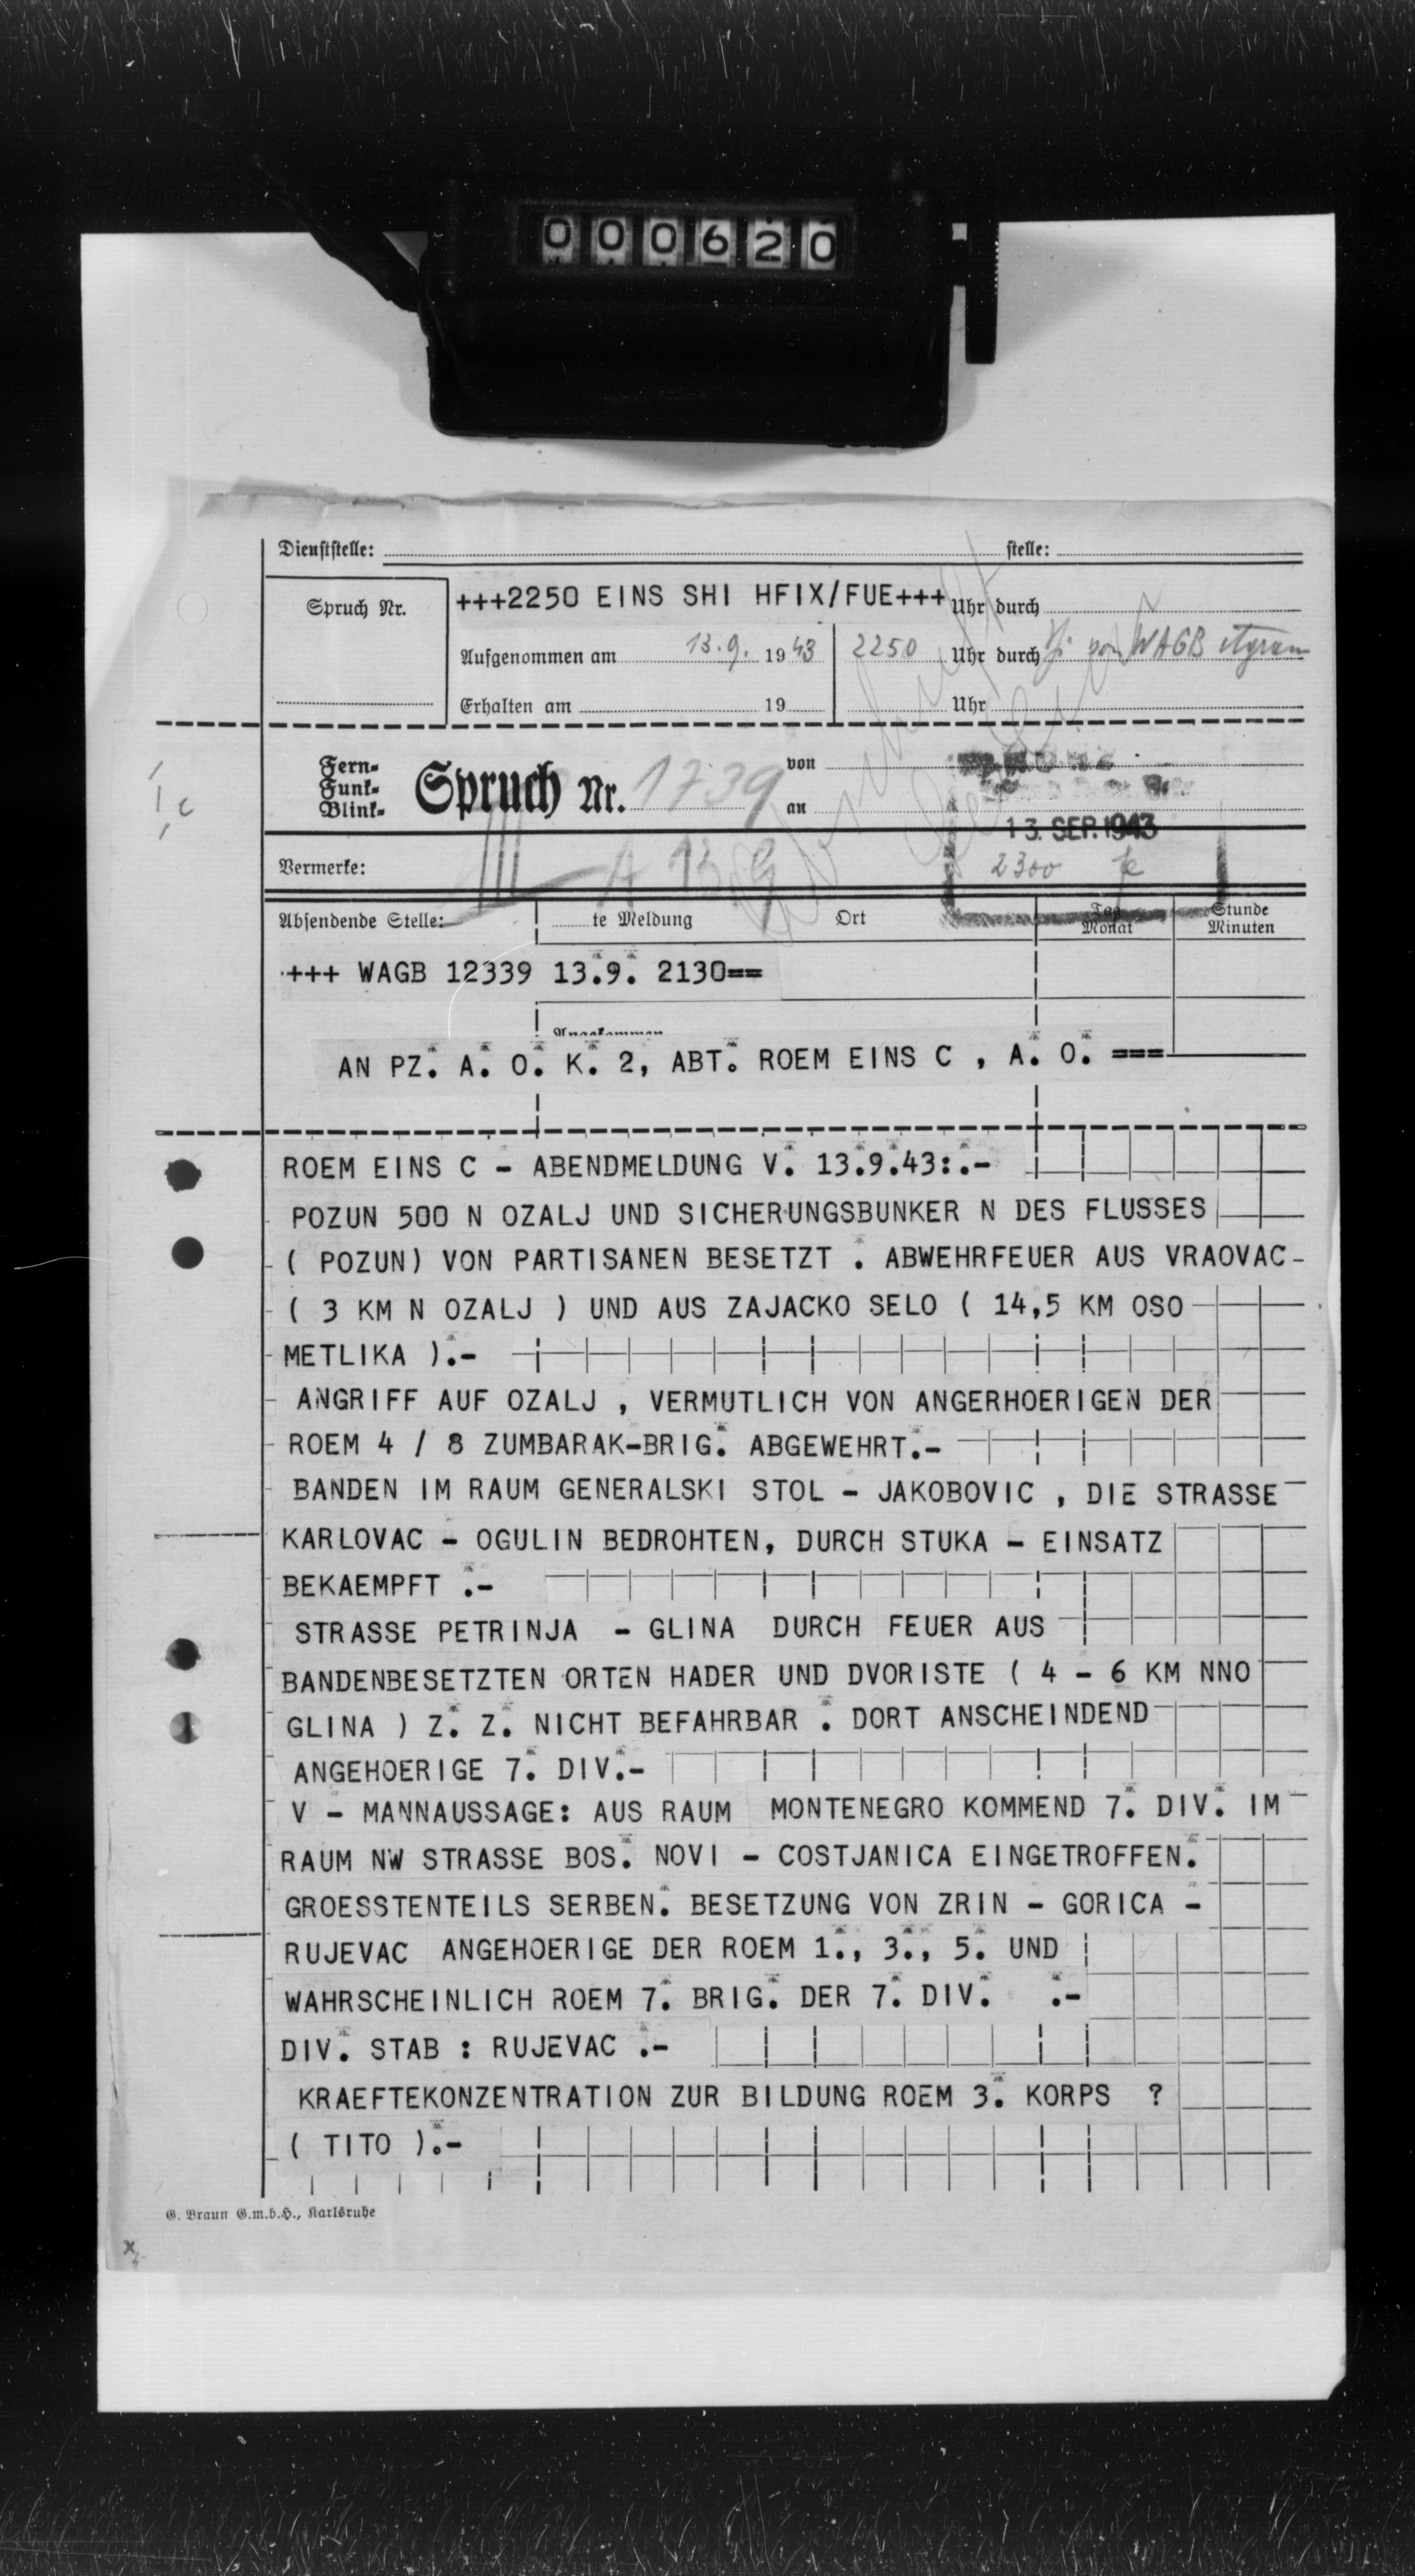 000620
Dienststelle: stelle:
Spruch Nr. +++2250 EINS SHI HFIX/FUE+++ Uhr durch
Aufgenommen am 13.9. 1943 2250 Uhr durch von WAGB
Erhalten am 19 Uhr
Fern-
Funk-
Blink-
Spruch Nr. 1739 von
an
13. SEP. 1943
Vermerke: 2300
Absendende Stelle: te Meldung Ort Tag Monat Stunde Minuten
+++ WAGB 12339 13.9. 2130==
Angekommen
AN PZ. A. O. K. 2, ABT. ROEM EINS C , A. O. ===
ROEM EINS C - ABENDMELDUNG V. 13.9.43:.-
POZUN 500 N OZALJ UND SICHERUNGSBUNKER N DES FLUSSES
( POZUN) VON PARTISANEN BESETZT . ABWEHRFEUER AUS VRAOVAC
( 3 KM N OZALJ ) UND AUS ZAJACKO SELO ( 14,5 KM OSO
METLIKA ).-
ANGRIFF AUF OZALJ , VERMUTLICH VON ANGERHOERIGEN DER
ROEM 4 / 8 ZUMBARAK-BRIG. ABGEWEHRT.-
BANDEN IM RAUM GENERALSKI STOL - JAKOBOVIC , DIE STRASSE
KARLOVAC - OGULIN BEDROHTEN, DURCH STUKA - EINSATZ
BEKAEMPFT .-
STRASSE PETRINJA - GLINA DURCH FEUER AUS
BANDENBESETZTEN ORTEN HADER UND DVORISTE ( 4 - 6 KM NNO
GLINA ) Z. Z. NICHT BEFAHRBAR . DORT ANSCHEINDEND
ANGEHOERIGE 7. DIV.-
V - MANNAUSSAGE: AUS RAUM MONTENEGRO KOMMEND 7. DIV. IM
RAUM NW STRASSE BOS. NOVI - COSTJANICA EINGETROFFEN.
GROESSTENTEILS SERBEN. BESETZUNG VON ZRIN - GORICA -
RUJEVAC ANGEHOERIGE DER ROEM 1., 3., 5. UND
WAHRSCHEINLICH ROEM 7. BRIG. DER 7. DIV. .-
DIV. STAB : RUJEVAC .-
KRAEFTEKONZENTRATION ZUR BILDUNG ROEM 3. KORPS ?
( TITO ).-
G. Braun G.m.b.H., Karlsruhe